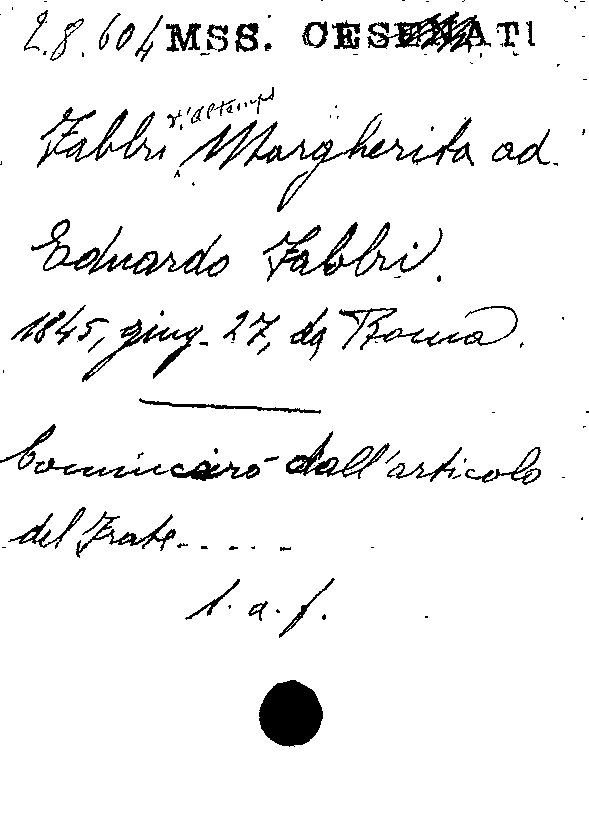 2.8.604 MSS. CESENATI
d'Altemps
Fabbri, Margherita ad
Eduardo Fabbri.
1845, giug. 27, da Roma.
Comincerò dall'articolo
del Frate.....
l. a. f.